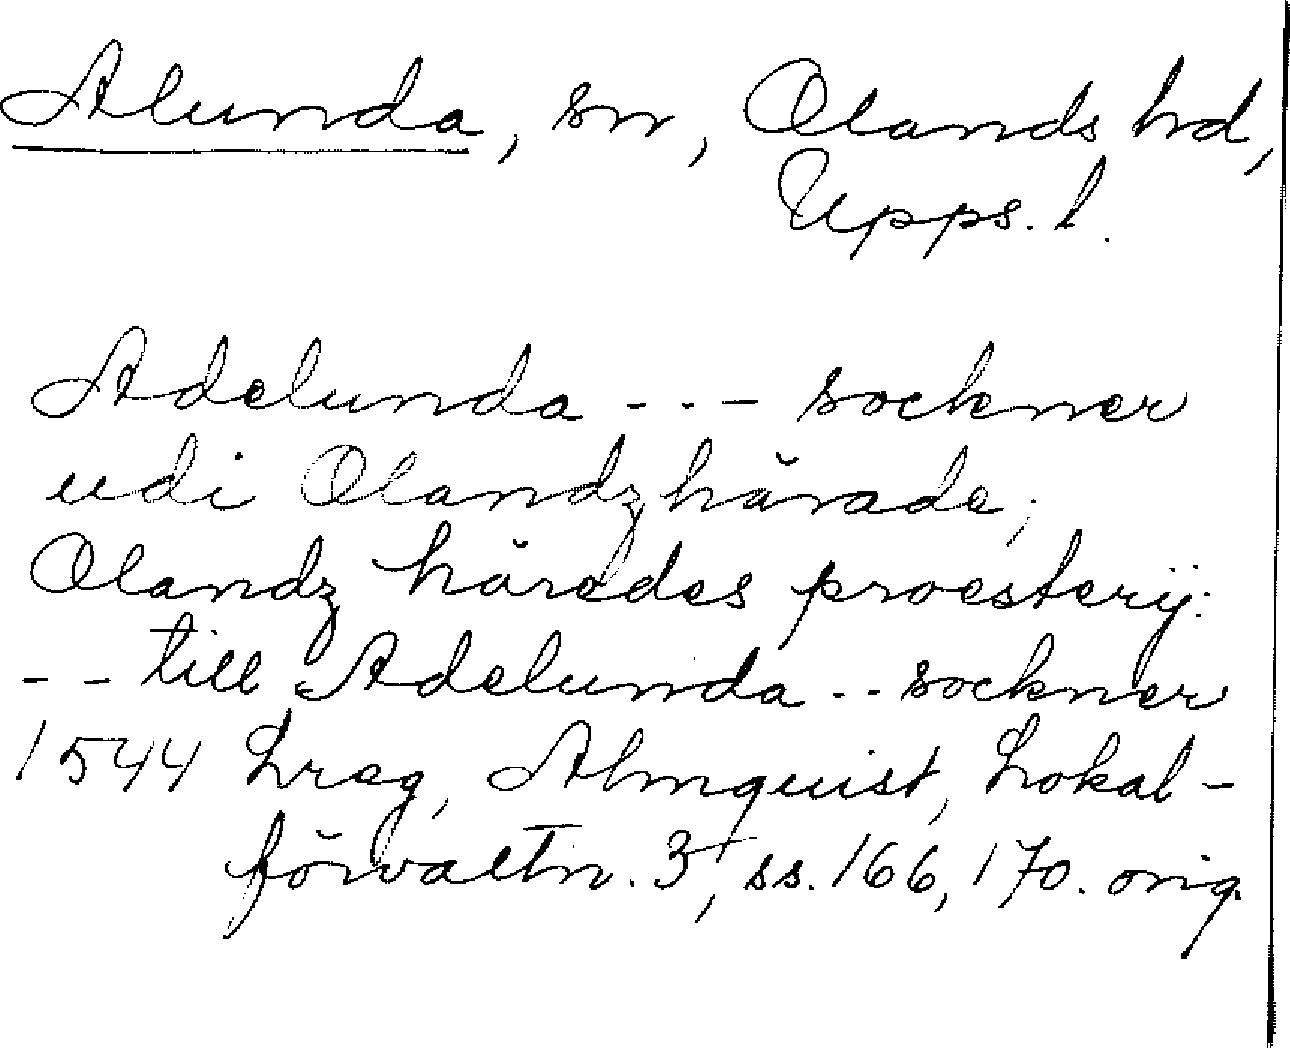 Alunda, sn, Olands hd,
Upps. l.
Adelunda - - - sockner
udi Olandzhärade;
Olandz häredes proesterij:
- - till Adelunda - - sockner
1544 Lreg, Almquist, Lokal-
förvaltn. 3, ss. 166, 170. orig.